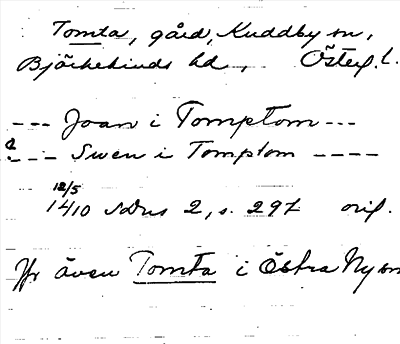 Tomta, gård, Kuddby sn,
Björkekinds hd, Österg. l.
--- Joan i Tomptom ---
--- Swen i Tomptom ----
12/5
1410 SDns 2, s. 297 orig.
Jfr även Tomta i Östra Ny sn